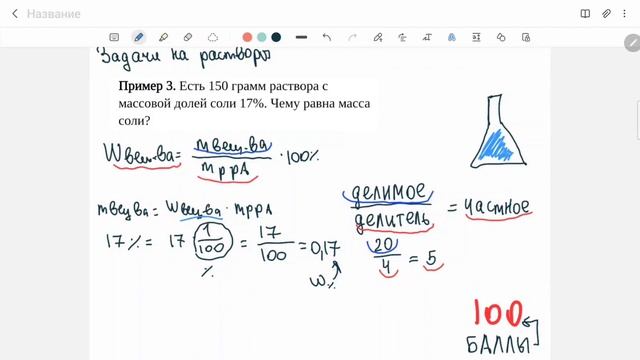 Название
Задачи на растворы
Пример 3. Есть 150 грамм раствора с
массовой долей соли 17%. Чему равна масса
соли?
Wвещ-ва = mвещ-ва / mррА · 100%
mвещ-ва = Wвещ-ва · mррА
17% = 17 · 1/100 = 17/100 = 0,17
%
W%
делимое / делитель = частное
20/4 = 5
100
БАЛЛЫ